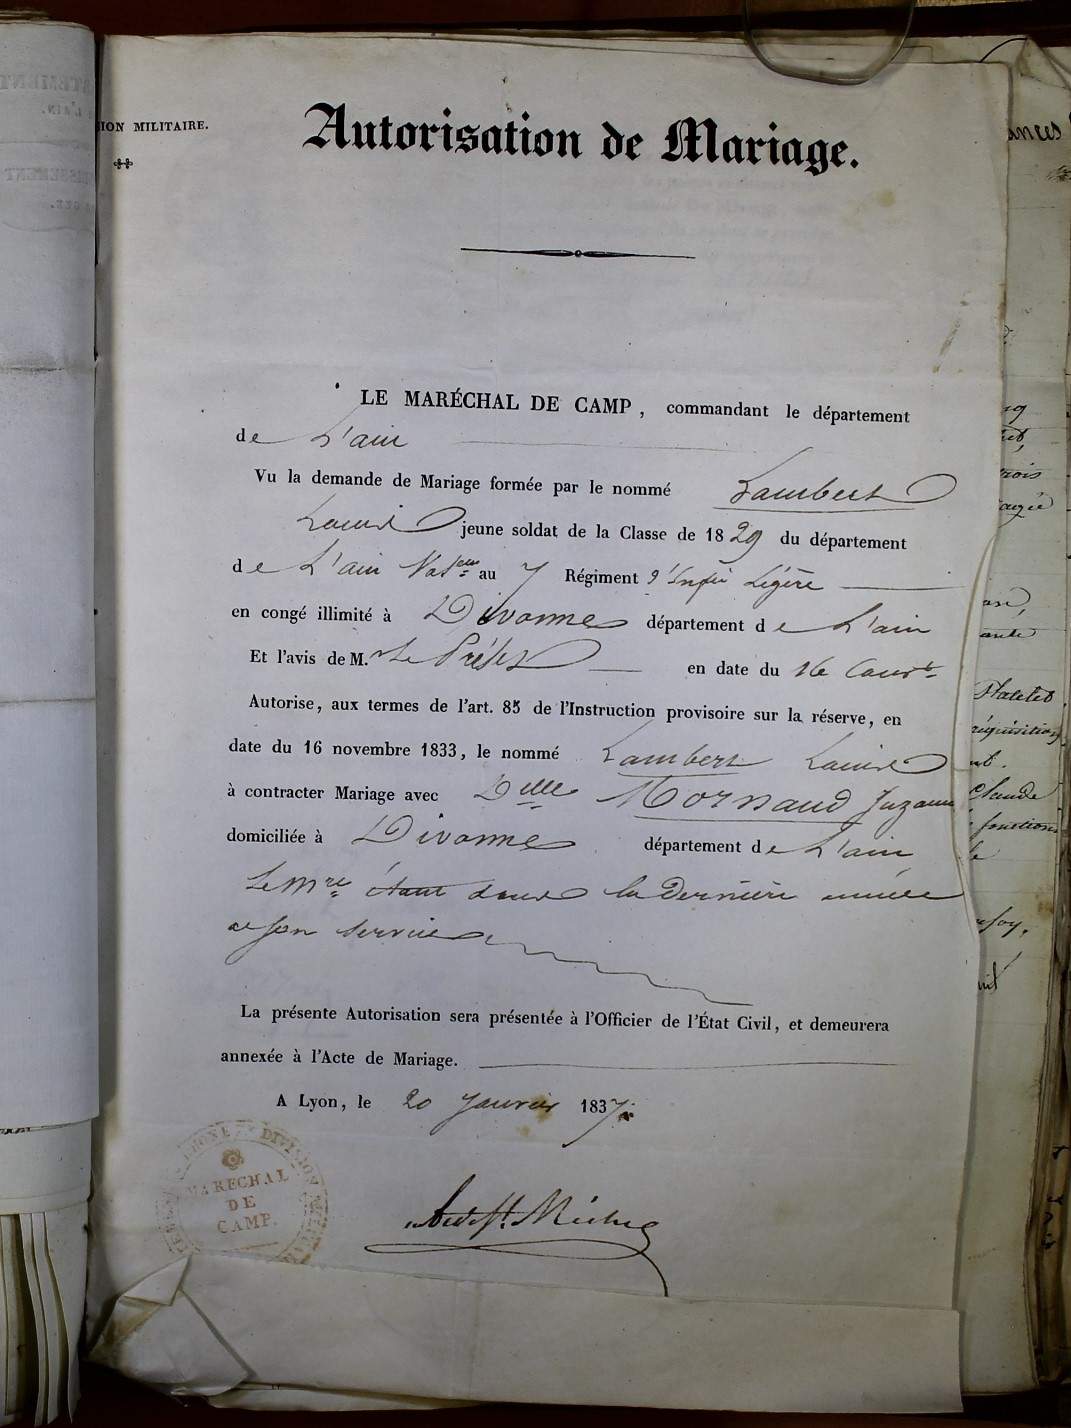 ION MILITAIRE.
Autorisation de Mariage.
LE MARÉCHAL DE CAMP, commandant le département
de L'ain
Vu la demande de Mariage formée par le nommé Lambert
Louis jeune soldat de la Classe de 1829 du département
de L'ain au 7 Régiment d'Infrie Légère
en congé illimité à Divonne département de L'ain
Et l'avis de M. le Préfet en date du 16 Court
Autorise, aux termes de l'art. 85 de l'Instruction provisoire sur la réserve, en
date du 16 novembre 1833, le nommé Lambert Louis
à contracter Mariage avec Delle Mornaud Suzanne
domiciliée à Divonne département de L'ain
Le mre étant dans la Dernière année
de son service
La présente Autorisation sera présentée à l'Officier de l'État Civil, et demeurera
annexée à l'Acte de Mariage.
A Lyon, le 20 Janvier 1837.
DIVISION
MARECHAL
DE
CAMP.